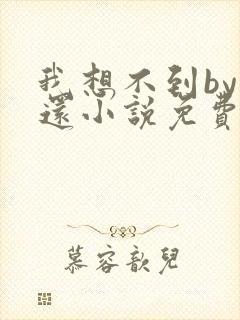 我想不到by
還小說免費
慕容歆兒